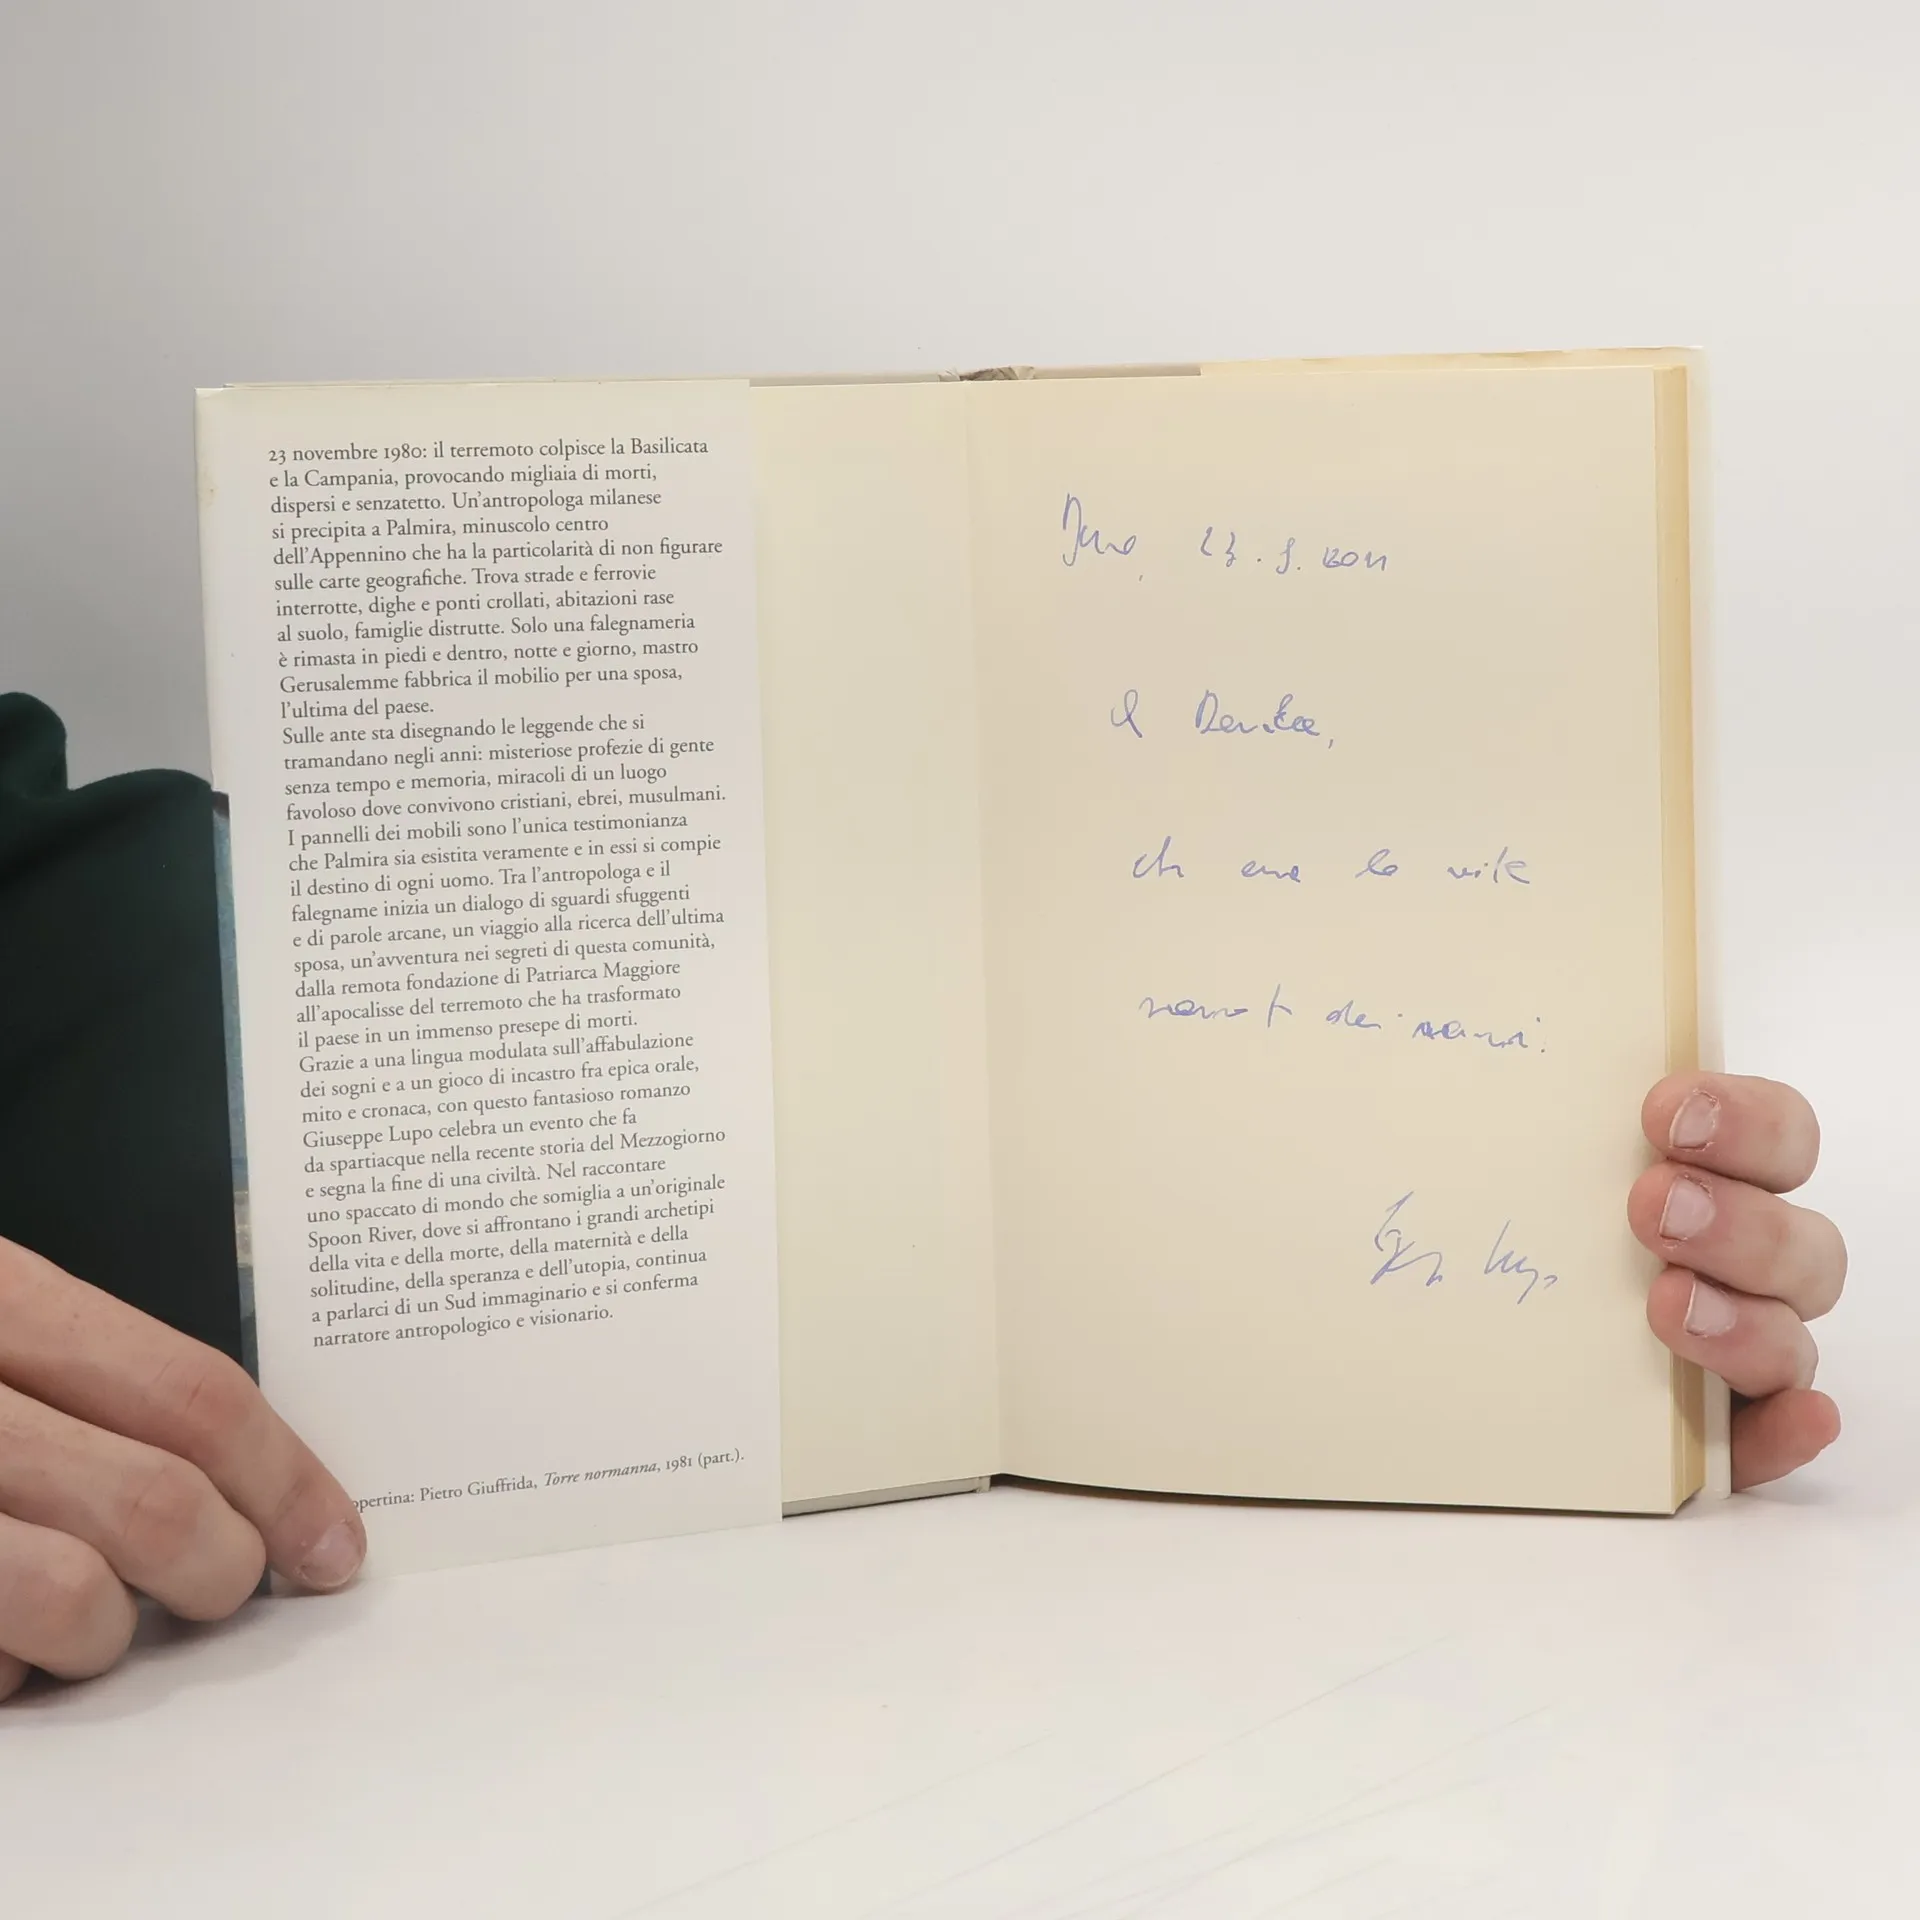 23 novembre 1980: il terremoto colpisce la Basilicata
e la Campania, provocando migliaia di morti,
dispersi e senzatetto. Un'antropologa milanese
si precipita a Palmira, minuscolo centro
dell'Appennino che ha la particolarità di non figurare
sulle carte geografiche. Trova strade e ferrovie
interrotte, dighe e ponti crollati, abitazioni rase
al suolo, famiglie distrutte. Solo una falegnameria
è rimasta in piedi e dentro, notte e giorno, mastro
Gerusalemme fabbrica il mobilio per una sposa,
l'ultima del paese.
Sulle ante sta disegnando le leggende che si
tramandano negli anni: misteriose profezie di gente
senza tempo e memoria, miracoli di un luogo
favoloso dove convivono cristiani, ebrei, musulmani.
I pannelli dei mobili sono l'unica testimonianza
che Palmira sia esistita veramente e in essi si compie
il destino di ogni uomo. Tra l'antropologa e il
falegname inizia un dialogo di sguardi sfuggenti
e di parole arcane, un viaggio alla ricerca dell'ultima
sposa, un'avventura nei segreti di questa comunità,
dalla remota fondazione di Patriarca Maggiore
all'apocalisse del terremoto che ha trasformato
il paese in un immenso presepe di morti.
Grazie a una lingua modulata sull'affabulazione
dei sogni e a un gioco di incastro fra epica orale,
mito e cronaca, con questo fantasioso romanzo
Giuseppe Lupo celebra un evento che fa
da spartiacque nella recente storia del Mezzogiorno
e segna la fine di una civiltà. Nel raccontare
uno spaccato di mondo che somiglia a un'originale
Spoon River, dove si affrontano i grandi archetipi
della vita e della morte, della maternità e della
solitudine, della speranza e dell'utopia, continua
a parlarci di un Sud immaginario e si conferma
narratore antropologico e visionario.
opertina: Pietro Giuffrida, Torre normanna, 1981 (part.).
2011
che ama la vita
dei
Lupo